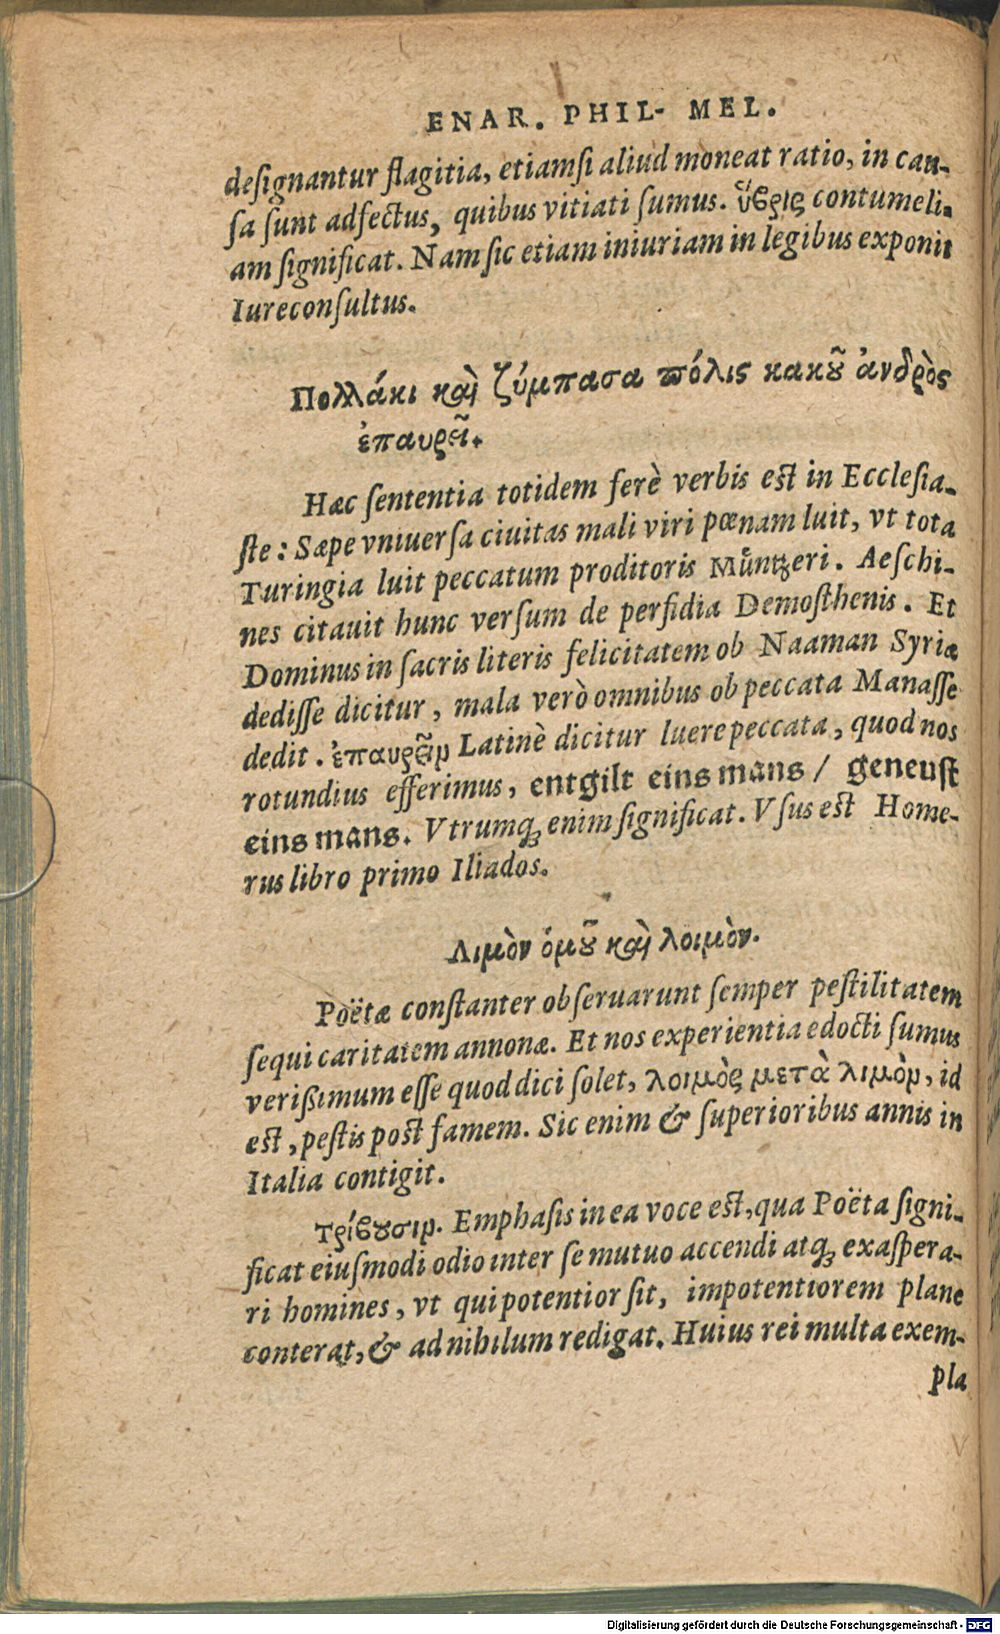 ENAR. PHIL- MEL.
deſignantur flagitia, etiamſi aliud moneat ratio, in cau-
ſa ſunt adfectus, quibus vitiati ſumus. ὕβρις contumeli-
am ſignificat. Nam ſic etiam iniuriam in legibus exponit
Iureconſultus.
Πολλάκι καὶ ζύμπασα πόλις κακοῦ ἀνδρὸς
ἐπαυρεῖ.
Hæc ſententia totidem ferè verbis est in Eccleſia-
ſte: Sæpe vniuerſa ciuitas mali viri pœnam luit, vt tota
Turingia luit peccatum proditoris Müntzeri. Aeſchi-
nes citauit hunc verſum de perfidia Demoſthenis. Et
Dominus in ſacris literis felicitatem ob Naaman Syriæ
dediſſe dicitur, mala verò omnibus ob peccata Manaſſe
dedit. ἐπαυρεῖν Latinè dicitur luere peccata, quod nos
rotundius efferimus, entgilt eins mans / geneuſt
eins mans. Vtrumq; enim ſignificat. Vſus est Home-
rus libro primo Iliados.
Λιμὸν ὁμοῦ καὶ λοιμὸν.
Poëtæ conſtanter obſeruarunt ſemper peſtilitatem
ſequi caritatem annonæ. Et nos experientia edocti ſumus
verißimum eſſe quod dici ſolet, λοιμὸς μετὰ λιμὸν, id
est, peſtis poſt famem. Sic enim & ſuperioribus annis in
Italia contigit.
τρίβουσιν. Emphaſis in ea voce est, qua Poëta ſigni-
ficat eiuſmodi odio inter ſe mutuo accendi atq; exaſpera-
ri homines, vt qui potentior ſit, impotentiorem plane
conterat, & ad nihilum redigat. Huius rei multa exem-
pla
Digitalisierung gefördert durch die Deutsche Forschungsgemeinschaft - DFG